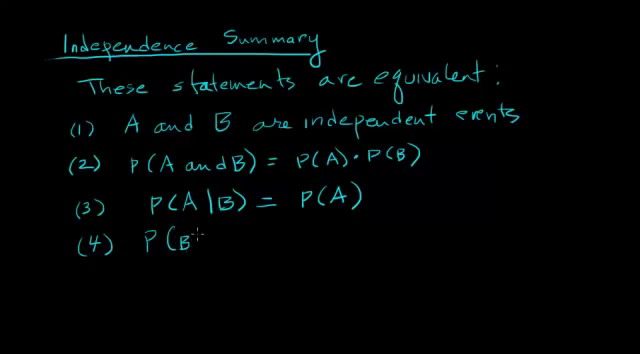 Independence Summary
These statements are equivalent:
(1) A and B are independent events
(2) P(A and B) = P(A) • P(B)
(3) P(A|B) = P(A)
(4) P(B